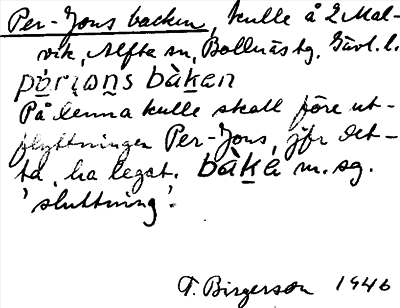 Per-Jons backen, kulle å 2 Mal-
vik, Alfta sn, Bollnäs tg. Gävl. l.
pǫ̀rɩọn̠s bàk̠en
På denna kulle skall före ut-
flyttningen Per-Jons, jfr det-
ta, ha legat. bàk̠e m. sg.
'sluttning'.
F. Birgerson 1946